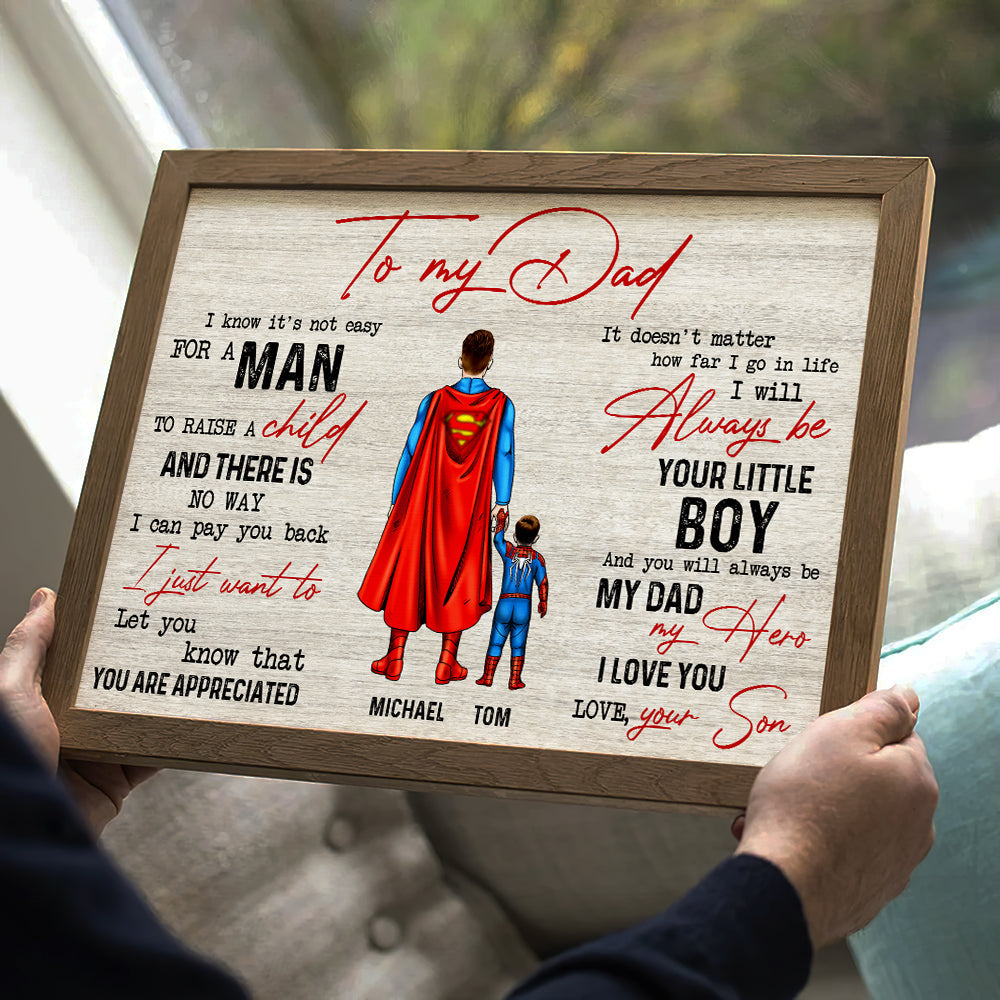 To my Dad
I know it's not easy
FOR A MAN
TO RAISE A child
AND THERE IS
NO WAY
I can pay you back
I just want to
Let you
know that
YOU ARE APPRECIATED
It doesn't matter
how far I go in life
I will
Always be
YOUR LITTLE
BOY
And you will always be
MY DAD
my Hero
I LOVE YOU
LOVE, your Son
MICHAEL TOM